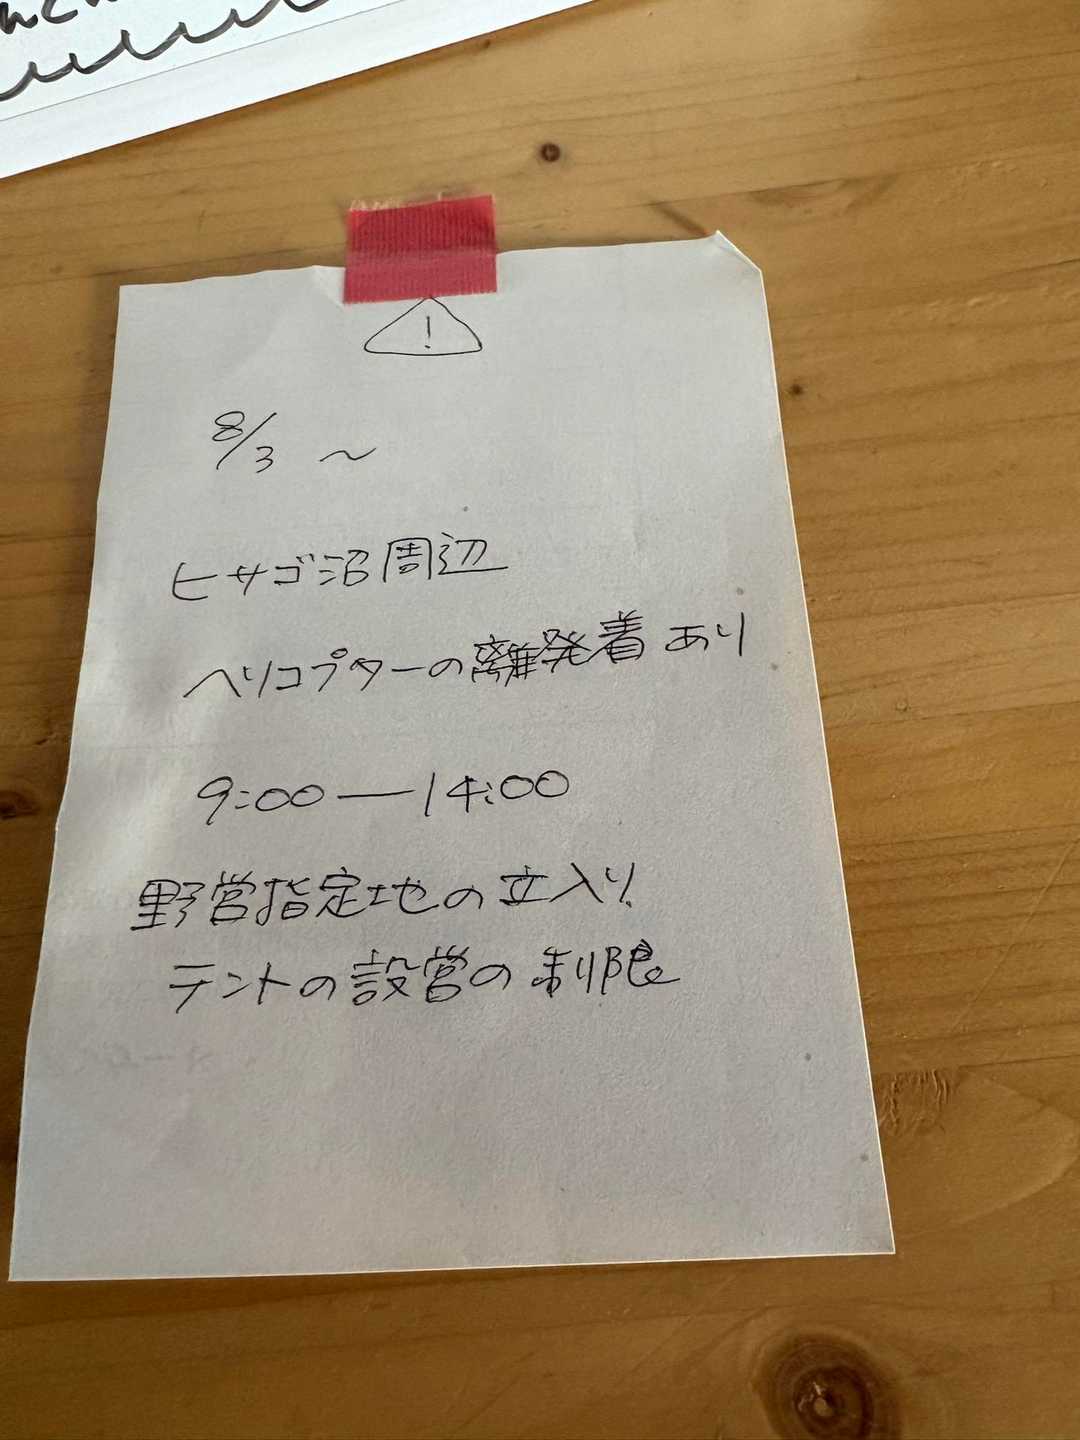 !
8/3 ~
ヒサゴ沼周辺
ヘリコプターの離発着あり
9:00―14:00
野営指定地の立入り
テントの設営の制限